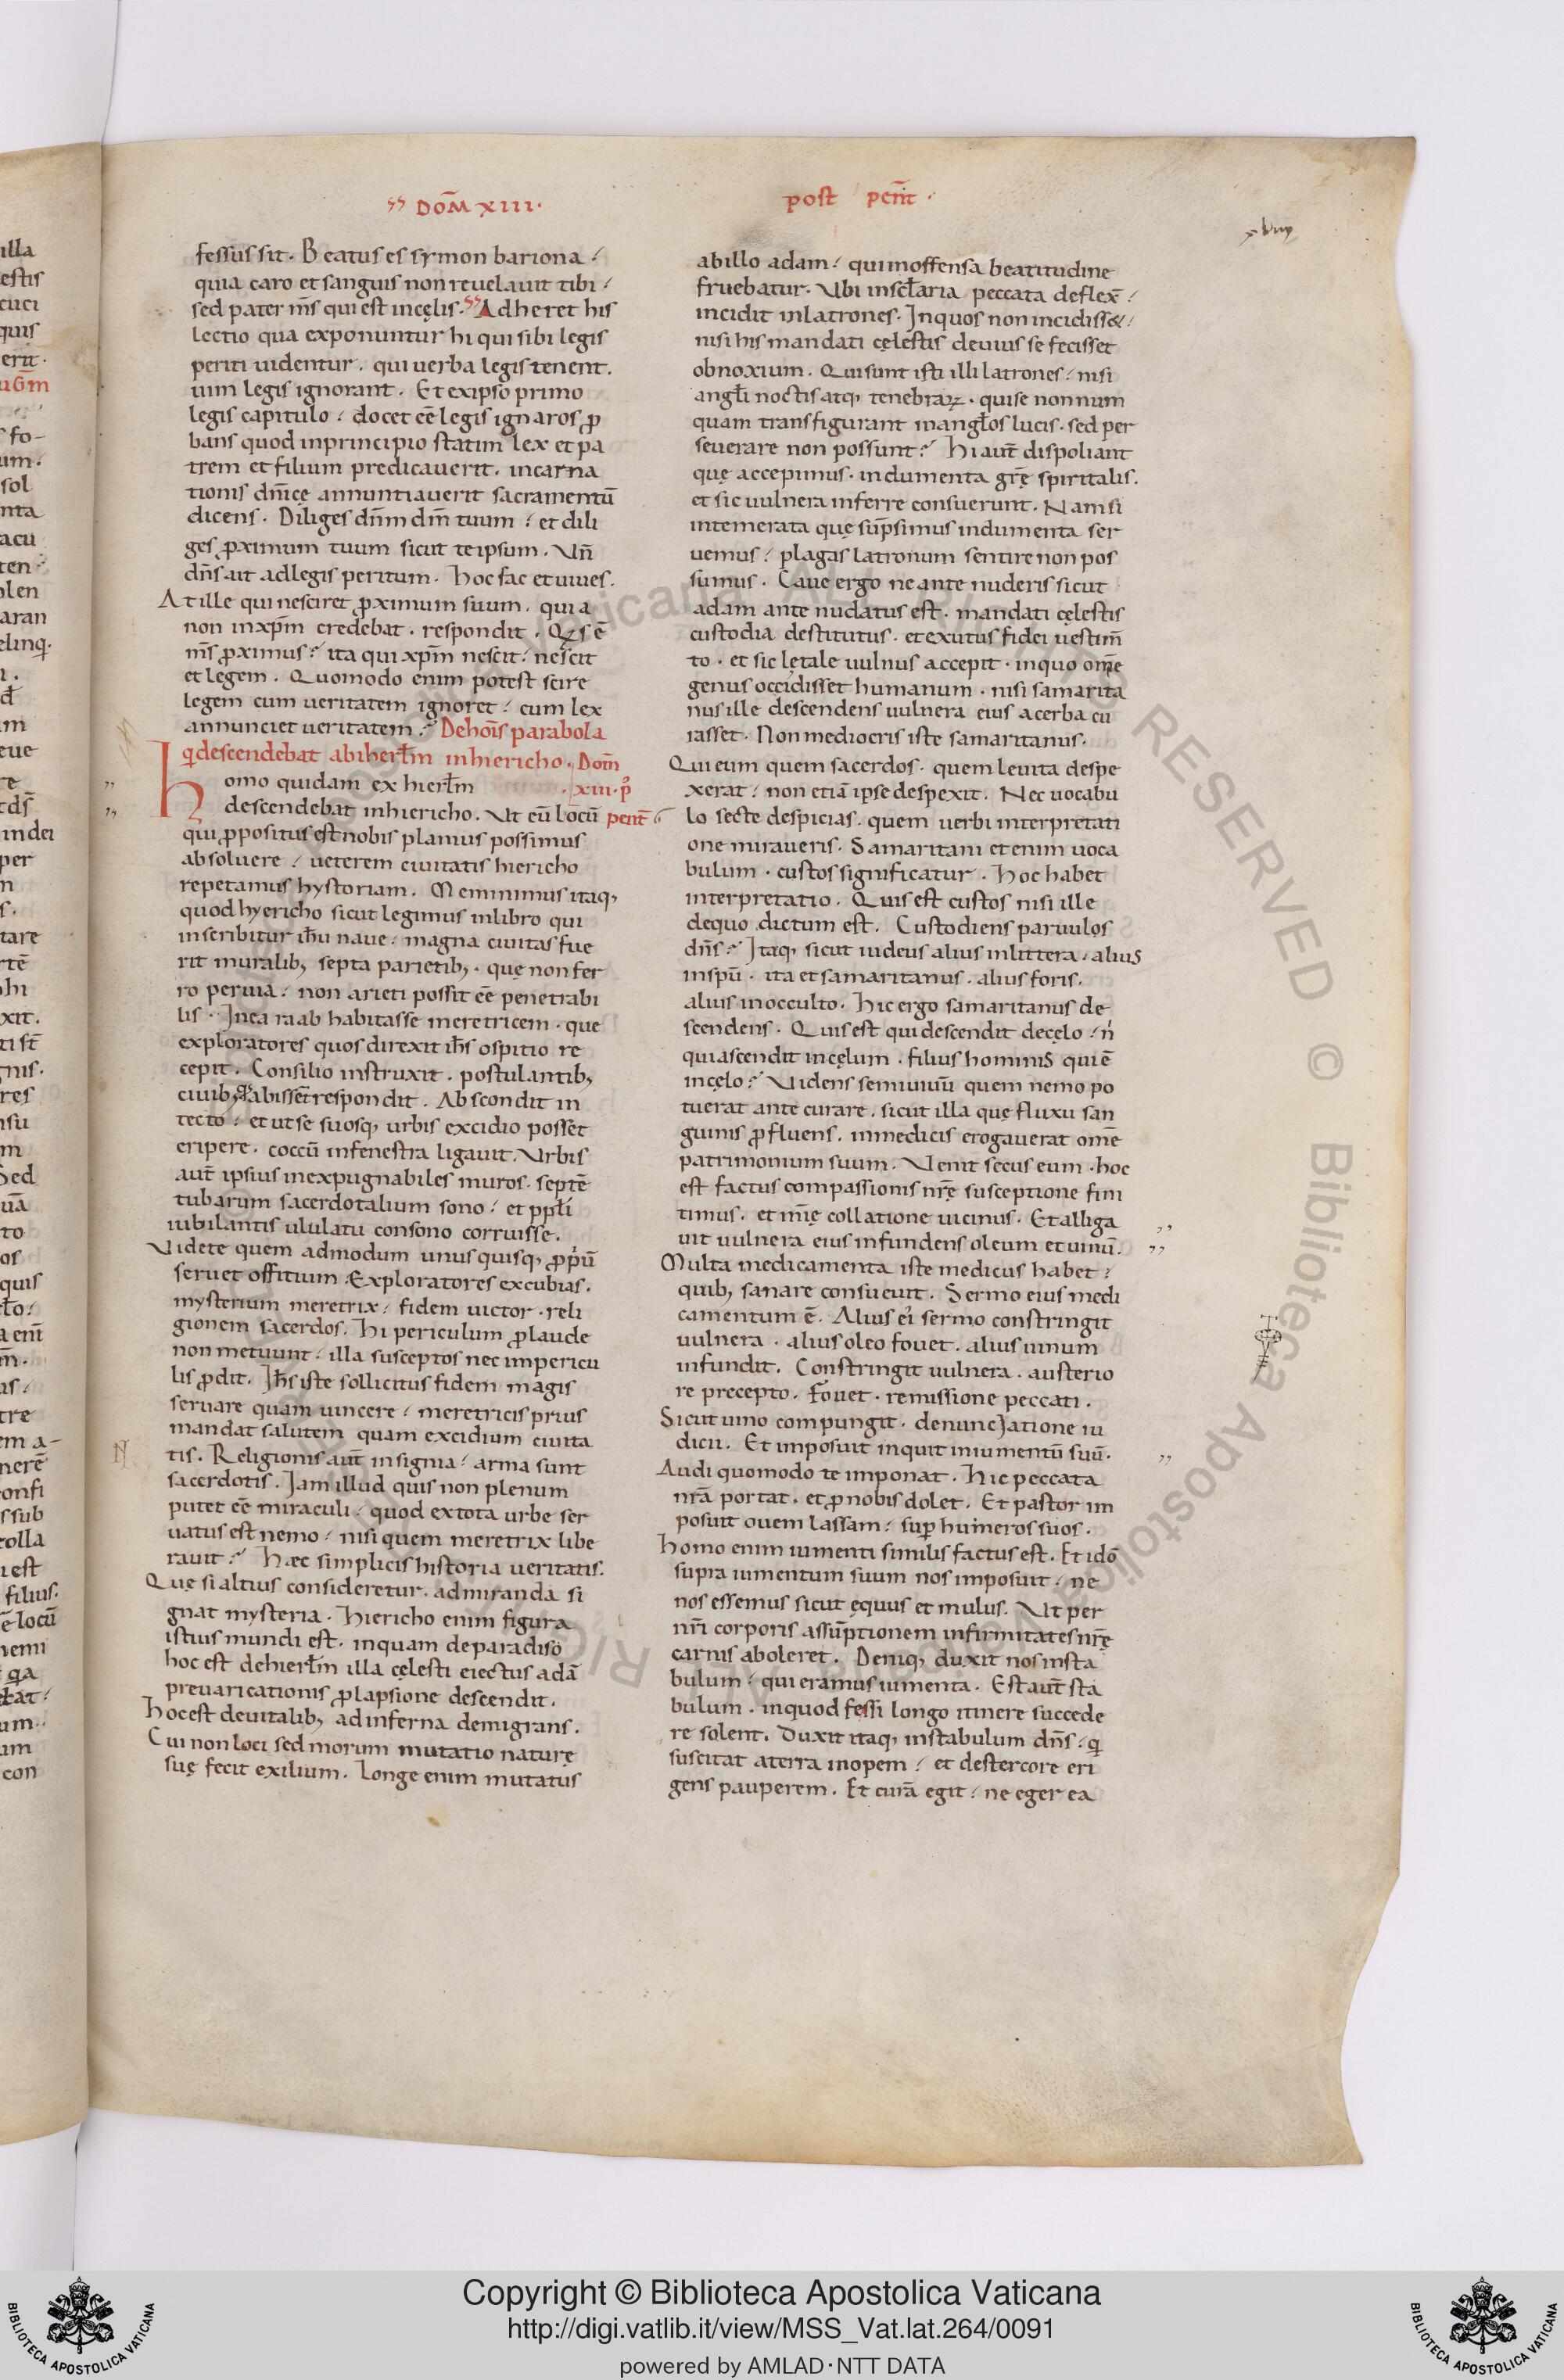 ss DOM̄ XIII·
post pent̄·
xlviii
fessus sit. Beatus es symon bariona;
quia caro et sanguis non reuelauit tibi;
sed pater m̄s qui est in cęlis. ss Adheret his
lectio qua exponuntur hi qui sibi legis
periti uidentur. qui uerba legis tenent.
uim legis ignorant. Et ex ipso primo
legis capitulo; docet eē legis ignaros ꝓ
bans quod in principio statim lex et pa
trem et filium predicauerit. incarna
tionis dn̄icę annuntiauerit sacramentū
dicens. Diliges dn̄m dm̄ tuum; et dili
ges ꝓximum tuum sicut te ipsum. Vn̄
dn̄s ait ad legis peritum. Hoc fac et uiues.
At ille qui nesciret ꝓximum suum. quia
non in xp̄m credebat. respondit. Qs ē
m̄s ꝓximus? ita qui xp̄m nescit; nescit
et legem. Quomodo enim potest scire
legem cum ueritatem ignoret; cum lex
annunciet ueritatem? De hoīs parabola
q descendebat ab iherl̄m in hiericho. Dom̄
xiii. p̊
Homo quidam ex hierl̄m
descendebat in hiericho. Vt eū locū pent̄
qui ꝓpositus est nobis planius possimus
absoluere; ueterem ciuitatis hiericho
repetamus hystoriam. Meminimus itaq,
quod hyericho sicut legimus in libro qui
inscribitur ih̄u naue; magna ciuitas fue
rit muralib, septa parietib,. quę non fer
ro peruia; non arieti possit eē penetrabi
lis. In ea raab habitasse meretricem. que
exploratores quos direxit ih̄s ospitio re
cepit. Consilio instruxit. postulantib,
ciuib, qđ abissēt respondit. Abscondit in
tecto; et ut se suosq, urbis excidio posset
eripere. coccū in fenestra ligauit. Vrbis
aut̄ ipsius inexpugnabiles muros. septē
tubarum sacerdotalium sono; et ppl̄i
iubilantis ululatu consono corruisse.
Videte quem admodum unus quisq, ꝓpiū
seruet offitium Exploratores excubias.
mysterium meretrix; fidem uictor. reli
gionem sacerdos. Hi periculum ꝓ laude
non metuunt; illa susceptos nec in pericu
lis ꝓdit. Ih̄s iste sollicitus fidem magis
seruare quam uincere; meretricis prius
mandat salutem quam excidium ciuita
tis. Religionis aut̄ insignia; arma sunt
sacerdotis. Iam illud quis non plenum
putet eē miraculi; quod ex tota urbe ser
uatus est nemo; nisi quem meretrix libe
rauit? Hæc simplicis historia ueritatis.
Quę si altius consideretur. admiranda si
gnat mysteria. Hiericho enim figura
istius mundi est. in quam de paradiso
hoc est de hierl̄m illa cęlesti eiectus adā
preuaricationis ꝓlapsione descendit.
Hoc est de uitalib, ad inferna demigrans.
Cui non loci sed morum mutatio naturę
suę fecit exilium. Longe enim mutatus
ab illo adam; qui inoffensa beatitudine
fruebatur. Vbi in scl̄aria peccata deflex̄;
incidit in latrones. In quos non incidisset;
nisi his mandati cęlestis deuius se fecisset
obnoxium. Qui sunt isti illi latrones; nisi
angl̄i noctis atq, tenebraꝝ. qui se non num
quam transfigurant in angl̄os lucis. sed per
seuerare non possunt? Hi aut̄ dispoliant
quę accepimus. indumenta gr̄ę spiritalis.
et sic uulnera inferre consuerunt. Nam si
intemerata quę sūpsimus indumenta ser
uemus; plagas latronum sentire non pos
sumus. Caue ergo ne ante nuderis sicut
adam ante nudatus est. mandati cęlestis
custodia destitutus. et exutus fidei uestim̄
to. et sic lętale uulnus accepit. in quo om̄e
genus occidisset humanum. nisi samarita
nus ille descendens uulnera eius acerba cu
rasset. Non mediocris iste samaritanus.
Qui eum quem sacerdos. quem leuita despe
xerat; non etiā ipse despexit. Nec uocabu
lo secte despicias. quem uerbi interpretati
one miraueris. Samaritani et enim uoca
bulum. custos significatur. Hoc habet
interpretatio. Quis est custos nisi ille
de quo dictum est. Custodiens paruulos
dn̄s? Itaq, sicut iudeus alius in littera. alius
in spū. ita et samaritanus. alius foris.
alius in occulto. Hic ergo samaritanus de
scendens. Quis est qui descendit de cęlo; n̄
qui ascendit in cęlum. filius hominis qui ē
in cęlo? Videns semiuiuū quem nemo po
tuerat ante curare. sicut illa quę fluxu san
guinis ꝓfluens. in medicis erogauerat om̄e
patrimonium suum. Venit secus eum. hoc
est factus compassionis nr̄ę susceptione fini
timus. et mīę collatione uicinus. Et alliga
uit uulnera eius infundens oleum et uinū.
Multa medicamenta iste medicus habet;
quib, sanare consueuit. Sermo eius medi
camentum ē. Alius ei sermo constringit
uulnera. alius oleo fouet. alius uinum
infundit. Constringit uulnera. austerio
re precepto. Fouet. remissione peccati.
Sicut uino compungit. denunciatione iu
dicii. Et imposuit inquit in iumentū suū.
Audi quomodo te imponat. Hic peccata
nr̄a portat. et ꝓ nobis dolet. Et pastor im
posuit ouem lassam; sup̄ humeros suos.
Homo enim iumenti similis factus est. Et idō
supra iumentum suum nos imposuit; ne
nos essemus sicut ęquus et mulus. Vt per
nr̄i corporis assūptionem infirmitates nr̄ę
carnis aboleret. Deniq, duxit nos in sta
bulum; qui eramus iumenta. Est aut̄ sta
bulum. in quod fessi longo itinere succede
re solent. Duxit itaq, in stabulum dn̄s; q̄
suscitat a terra inopem; et de stercore eri
gens pauperem. Et curā egit; ne eger ea
Copyright © Biblioteca Apostolica Vaticana
http://digi.vatlib.it/view/MSS_Vat.lat.264/0091
powered by AMLAD·NTT DATA